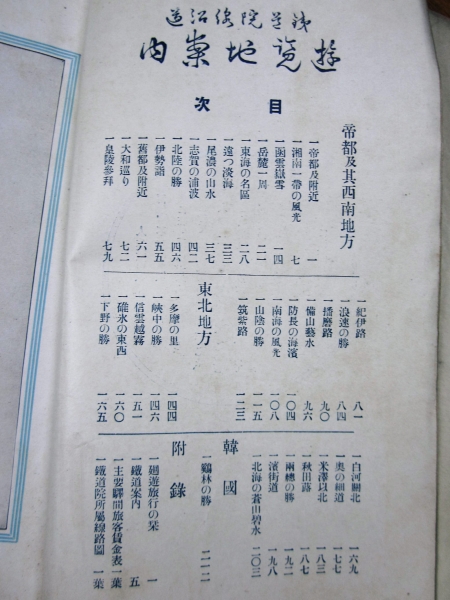 鉄道院線沿道
遊覧地案内
目次
帝都及其西南地方
一帝都及附近 一
一湘南一帶の風光 七
一函雲嶽雪 一四
一岳麓一周 二一
一東海の名區 二八
一遠つ淡海 三三
一尾濃の山水 三七
一志賀の浦波 四二
一北陸の勝 四六
一伊勢詣 五五
一舊都及附近 六一
一大和巡り 七二
一皇陵參拜 七九
一紀伊路 八一
一浪速の勝 八四
一播磨路 九〇
一備山藝水 九六
一防長の海濱 一〇四
一南海の風光 一〇八
一山陰の勝 一一五
一筑紫路 一二三
東北地方
一多摩の里 一四四
一峽中の勝 一四六
一信雲越霧 一五一
一碓氷の東西 一六〇
一下野の勝 一六五
一白河關北 一六九
一奧の細道 一七七
一米澤以北 一八三
一秋田蕗 一八七
一兩總の勝 一九二
一濱街道 一九八
一北海の蒼山碧水 二〇三
韓國
一鷄林の勝 二一二
附錄
一廻遊旅行の栞 一
一鐵道案內 五
一主要驛間旅客賃金表 一葉
一鐵道院所屬線路圖 一葉